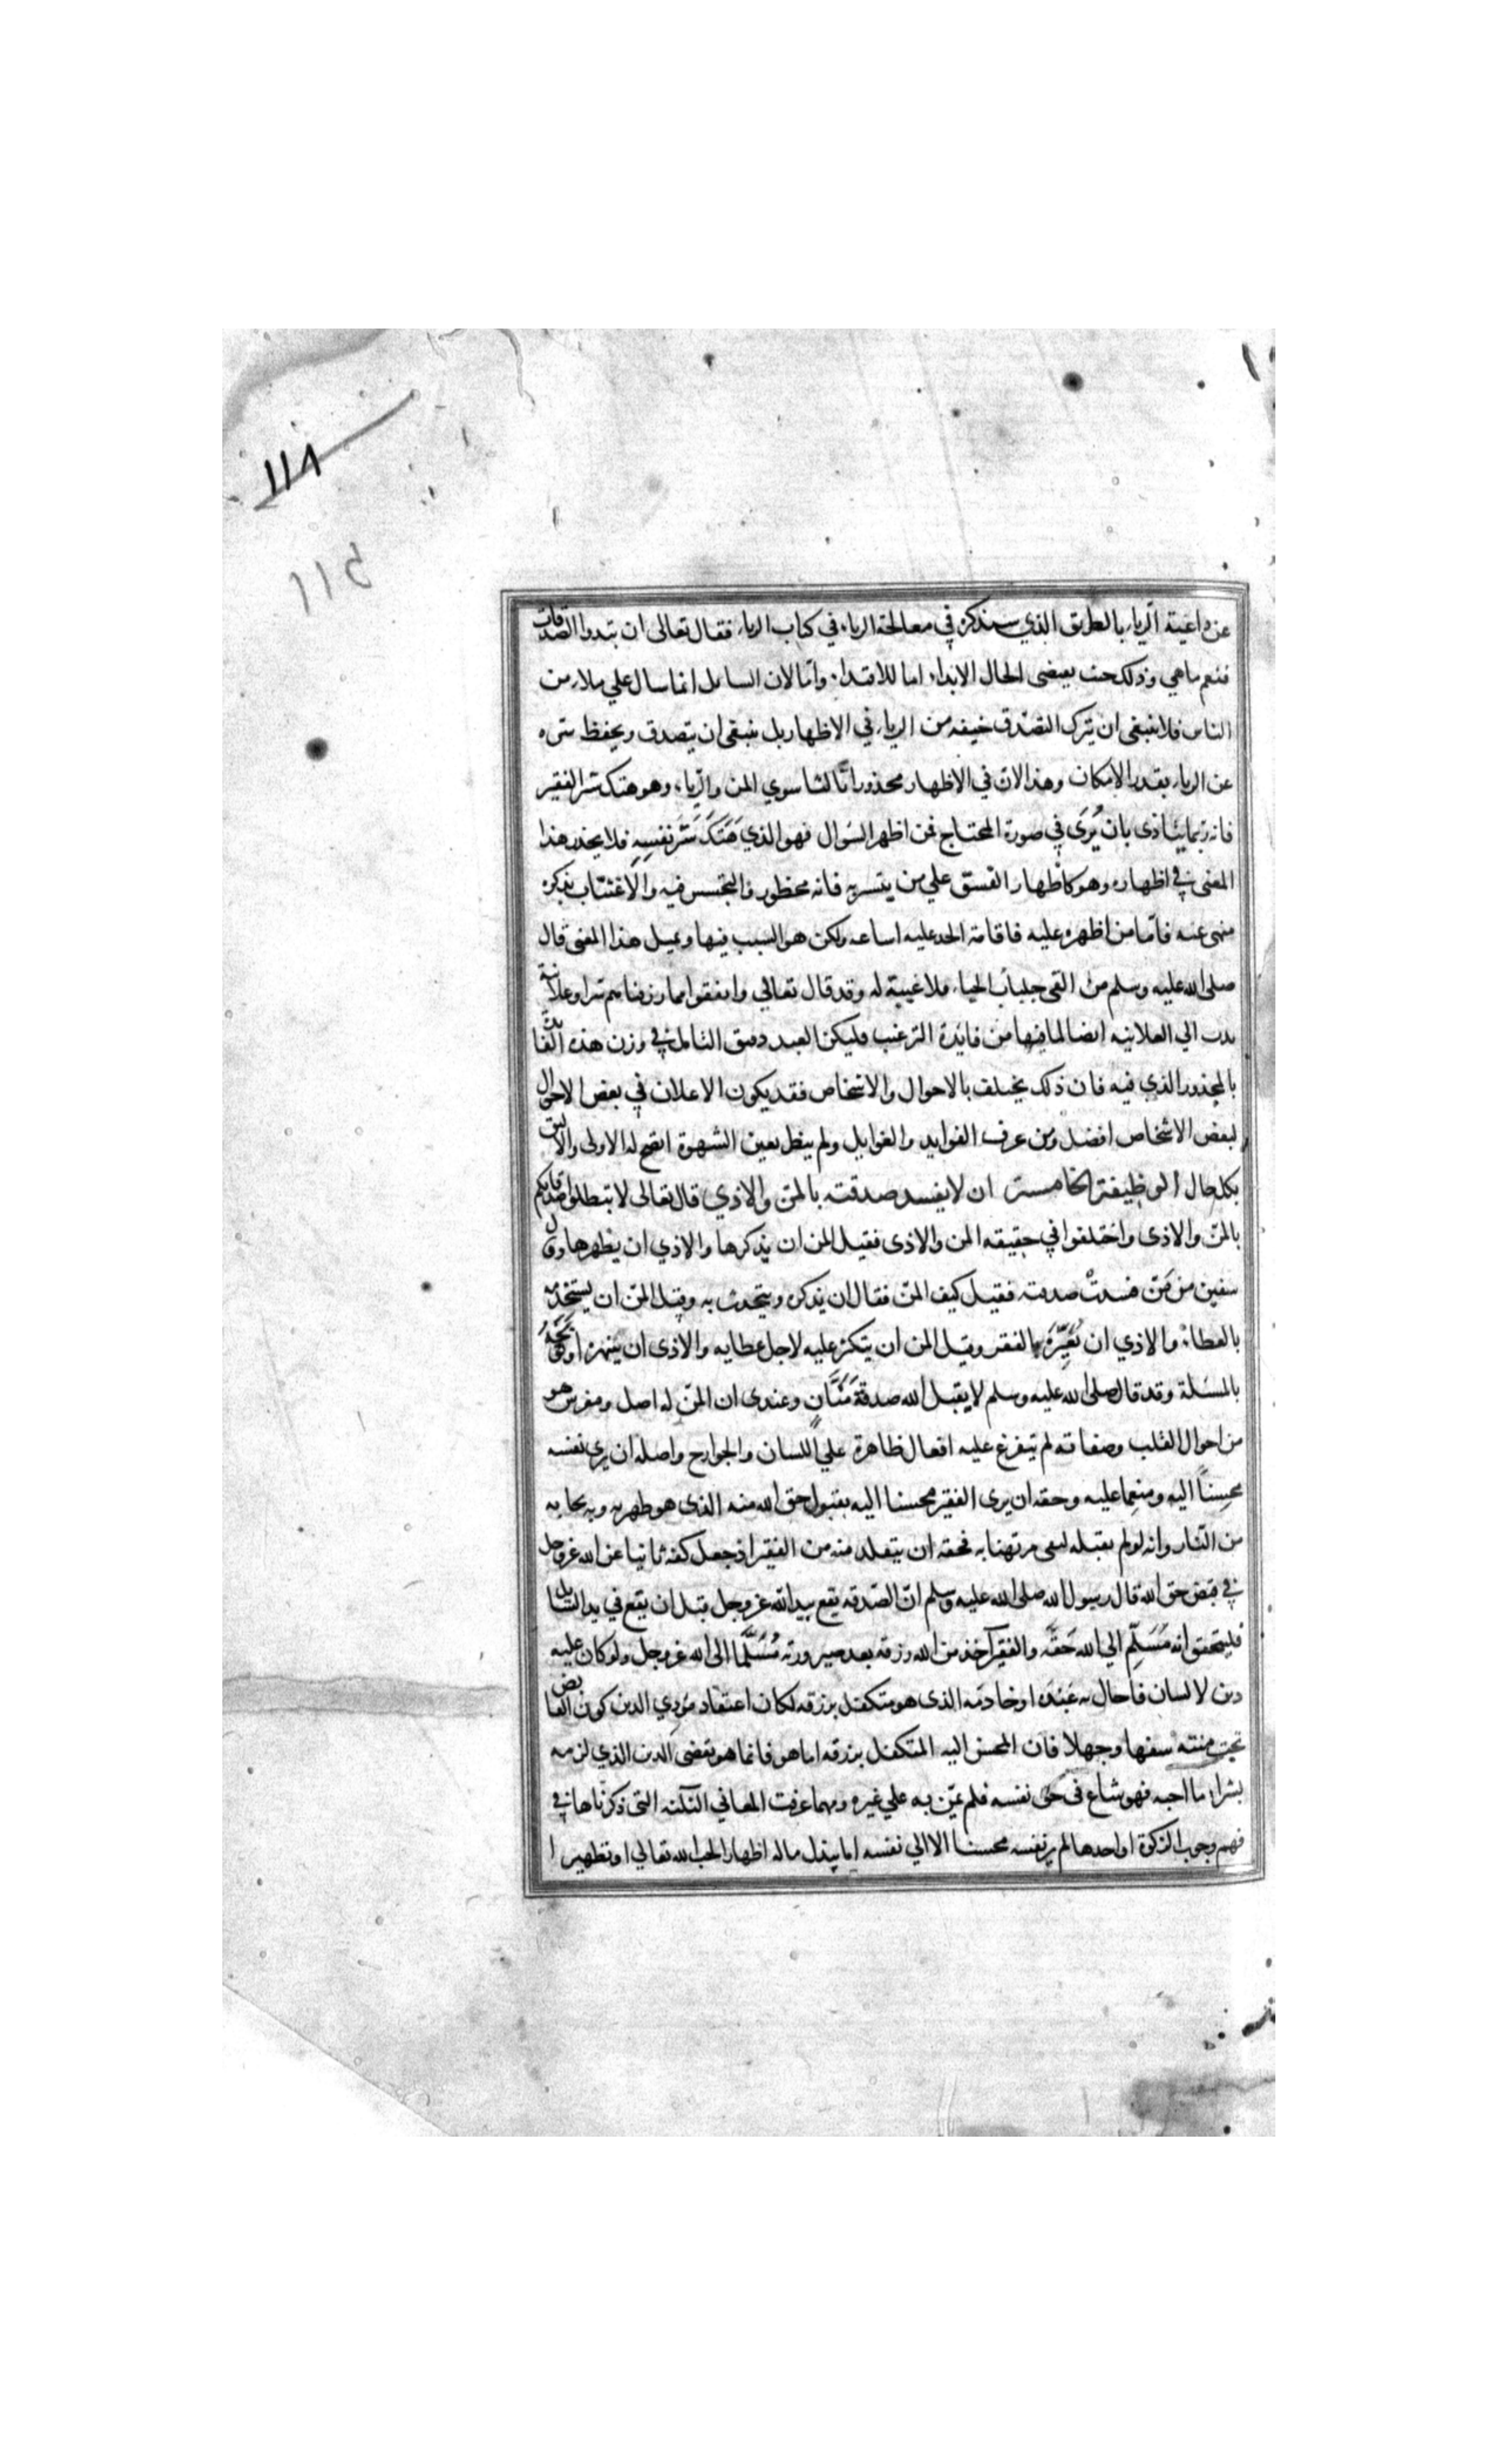 ١١٨
١١٤
عن داعية الرياء بالطريق الذي سنذكره في معالجة الرياء في كتاب الرياء فقال تعالى ان تبدوا الصدقات
فنعم ما هي وذلك حيث يقتضى الحال الابداء اما للاقتداء واما لان السايل انما سال علي ملاء من
الناس فلا ينبغى ان يترك التصدق خيفه من الرياء في الاظهار بل ينبغى ان يتصدق ويحفظ سره
عن الرياء بقدر الامكان وهذا لان في الاظهار محذورا ثالثا سوي المن والرياء وهو هتك ستر الفقير
فانه ربما يتاذى بان يُرَى في صورة المحتاج فمن اظهر السؤال فهو الذي هَتَكَ سَتْرَ نفسِهِ فلا يحذر هذا
المعنى في اظهاره وهو كاظهار الفسق علي من يتستر به فانه محظور والتجسس فيه والاغتياب بذكره
منهى عنه فامّا من اظهره عليه فاقامة الحد عليه اساعه ولكن هو السبب فيها وبمثل هذا المعنى قال
صلى الله عليه وسلم من القى جلباب الحياء فلا غيبة له وقد قال تعالي وانفقوا مما رزقناهم سرا وعلانية
ندب الي العلانيه ايضا لما فيها من فايدة الترغيب فليكن العبد دقيق التامل في وزن هذه الفائدة
بالمحذور الذي فيه فان ذلك يختلف بالاحوال والاشخاص فقد يكون الاعلان في بعض الاحوال
لبعض الاشخاص افضل ومن عرف الفوايد والغوايل ولم ينظر بعين الشهوة اتضح له الاولى والاليق
بكل حال الوظيفة الخامسة ان لا يفسد صدقته بالمن والاذي قال تعالى لا تبطلوا صدقاتكم
بالمنّ والاذى واختلفوا في حقيقه المن والاذى فقيل المن ان يذكرها والاذي ان يظهرها وقال
سفين من مَنّ فسدتْ صدقته فقيل كيف المنّ فقال ان يذكره ويتحدث به وقيل المنّ ان يستخدمه
بالعطاء والاذي ان يُعَيِّرَهُ بالفقر وقيل المن ان يتكبر عليه لاجل عطايه والاذى ان ينهره او يوبخه
بالمسئلة وقد قال صلى الله عليه وسلم لا يقبل الله صدقة مَنَّانٍ وعندى ان المنّ له اصل ومغرس هو
من احوال القلب وصفاته ثم يتفرع عليه افعال ظاهرة علي اللسان والجوارح واصله ان يرى نفسه
محسِناً اليه ومنعِما عليه وحقه ان يرى الفقير محسنا اليه بقبول حق الله منه الذى هو طهرته وبه نجاته
من النّار وانه لو لم يقبله لبقى مرتهنا به فحقه ان يتقلد منه من الفقير اذ جعل كفه نائبا عن الله عز وجل
في قبض حق الله قال رسول الله صلى الله عليه وسلم انّ الصّدقه يقع بيد الله عز وجل قبل ان يقع في يد السّايل
فليتحقق انه مُسَلِّم الي الله حَقَّه والفقير آخذ من الله رزقه بعد صيرورته مُسَلَّمًا الى الله عز وجل ولو كان عليه
دين لانسان فاحال به عَبْدَه او خادمَه الذى هو متكفل برزقه لكان اعتقاد مؤدي الدين كون القابض
تحت منته سفها وجهلا فان المحسن اليه المتكفل برزقه اما هو فانما هو يقضى الدين الذي لزمه
بشراء ما احبه فهو ساع فى حق نفسه فلم يمن به علي غيره ومهما عرفت المعاني الثلثه التى ذكرناها في
فهم وجوب الزكوة او احدها لم ير نفسه محسنا الا الي نفسه اما ببذل ماله اظهارا لحب الله تعالي او تطهيرا